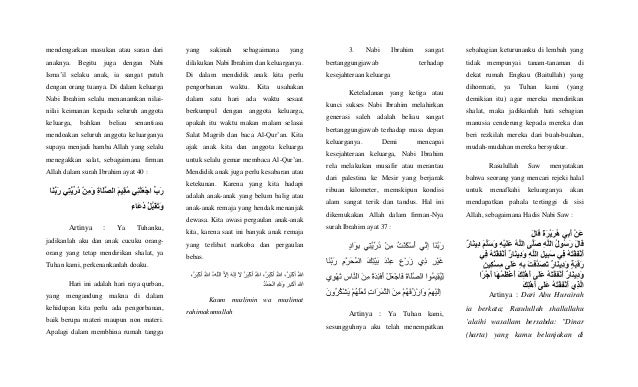 mendengarkan masukan atau saran dari
anaknya. Begitu juga dengan Nabi
Isma'il selaku anak, ia sangat patuh
dengan orang tuanya. Di dalam keluarga
Nabi Ibrahim selalu menanamkan nilai-
nilai keimanan kepada seluruh anggota
keluarga, bahkan beliau senantiasa
mendoakan seluruh anggota keluarganya
supaya menjadi hamba Allah yang selalu
menegakkan salat, sebagaimana firman
Allah dalam surah Ibrahim ayat 40 :
رَبِّ اجْعَلْنِي مُقِيمَ الصَّلَاةِ وَمِنْ ذُرِّيَّتِي رَبَّنَا
وَتَقَبَّلْ دُعَاءِ
Artinya : Ya Tuhanku,
jadikanlah aku dan anak cucuku orang-
orang yang tetap mendirikan shalat, ya
Tuhan kami, perkenankanlah doaku.
Hari ini adalah hari raya qurban,
yang mengandung makna di dalam
kehidupan kita perlu ada pengorbanan,
baik berupa materi maupun non materi.
Apalagi dalam membina rumah tangga
yang sakinah sebagaimana yang
dilakukan Nabi Ibrahim dan keluarganya.
Di dalam mendidik anak kita perlu
pengorbanan waktu. Kita usahakan
dalam satu hari ada waktu sesaat
berkumpul dengan anggota keluarga,
apakah itu waktu makan malam selasai
Salat Magrib dan baca Al-Qur'an. Kita
ajak anak kita dan anggota keluarga
untuk selalu gemar membaca Al-Qur'an.
Mendidik anak juga perlu kesabaran atau
ketekunan. Karena yang kita hadapi
adalah anak-anak yang belum balig atau
anak-anak remaja yang hendak menanjak
dewasa. Kita awasi pergaulan anak-anak
kita, karena saat ini banyak anak remaja
yang terlibat narkoba dan pergaulan
bebas.
اللهُ أَكْبَرُ، اللهُ أَكْبَرُ، اللهُ أَكْبَرُ لَا إِلَهَ إِلَّا اللهُ، اللهُ أَكْبَرُ
اللهُ أَكْبَرُ وَلِلَّهِ الْحَمْدُ
Kaum muslimin wa muslimat
rahimakumullah
3. Nabi Ibrahim sangat
bertanggungjawab terhadap
kesejahteraan keluarga
Keteladanan yang ketiga atau
kunci sukses Nabi Ibrahim melahirkan
generasi saleh adalah beliau sangat
bertanggungjawab terhadap masa depan
keluarganya. Demi mencapai
kesejahteraan keluarga, Nabi Ibrahim
rela melakukan musafir atau merantau
dari palestina ke Mesir yang berjarak
ribuan kilometer, memskipun kondisi
alam sangat terik dan tandus. Hal ini
dikemukakan Allah dalam firman-Nya
surah Ibrahim ayat 37 :
رَبَّنَا إِنِّي أَسْكَنْتُ مِنْ ذُرِّيَّتِي بِوَادٍ
غَيْرِ ذِي زَرْعٍ عِنْدَ بَيْتِكَ الْمُحَرَّمِ رَبَّنَا
لِيُقِيمُوا الصَّلَاةَ فَاجْعَلْ أَفْئِدَةً مِنَ النَّاسِ تَهْوِي
إِلَيْهِمْ وَارْزُقْهُمْ مِنَ الثَّمَرَاتِ لَعَلَّهُمْ يَشْكُرُونَ
Artinya : Ya Tuhan kami,
sesungguhnya aku telah menempatkan
sebahagian keturunanku di lembah yang
tidak mempunyai tanam-tanaman di
dekat rumah Engkau (Baitullah) yang
dihormati, ya Tuhan kami (yang
demikian itu) agar mereka mendirikan
shalat, maka jadikanlah hati sebagian
manusia cenderung kepada mereka dan
beri rezkilah mereka dari buah-buahan,
mudah-mudahan mereka bersyukur.
Rasulullah Saw menyatakan
bahwa seorang yang mencari rejeki halal
untuk menafkahi keluarganya akan
mendapatkan pahala tertinggi di sisi
Allah, sebagaimana Hadis Nabi Saw :
عَنْ أَبِي هُرَيْرَةَ قَالَ
قَالَ رَسُولُ اللَّهِ صَلَّى اللَّهُ عَلَيْهِ وَسَلَّمَ دِينَارٌ
أَنْفَقْتَهُ فِي سَبِيلِ اللَّهِ وَدِينَارٌ أَنْفَقْتَهُ فِي
رَقَبَةٍ وَدِينَارٌ تَصَدَّقْتَ بِهِ عَلَى مِسْكِينٍ
وَدِينَارٌ أَنْفَقْتَهُ عَلَى أَهْلِكَ أَعْظَمُهَا أَجْرًا
الَّذِي أَنْفَقْتَهُ عَلَى أَهْلِكَ
Artinya : Dari Abu Hurairah
ia berkata; Rasulullah shallallahu
'alaihi wasallam bersabda: "Dinar
(harta) yang kamu belanjakan di